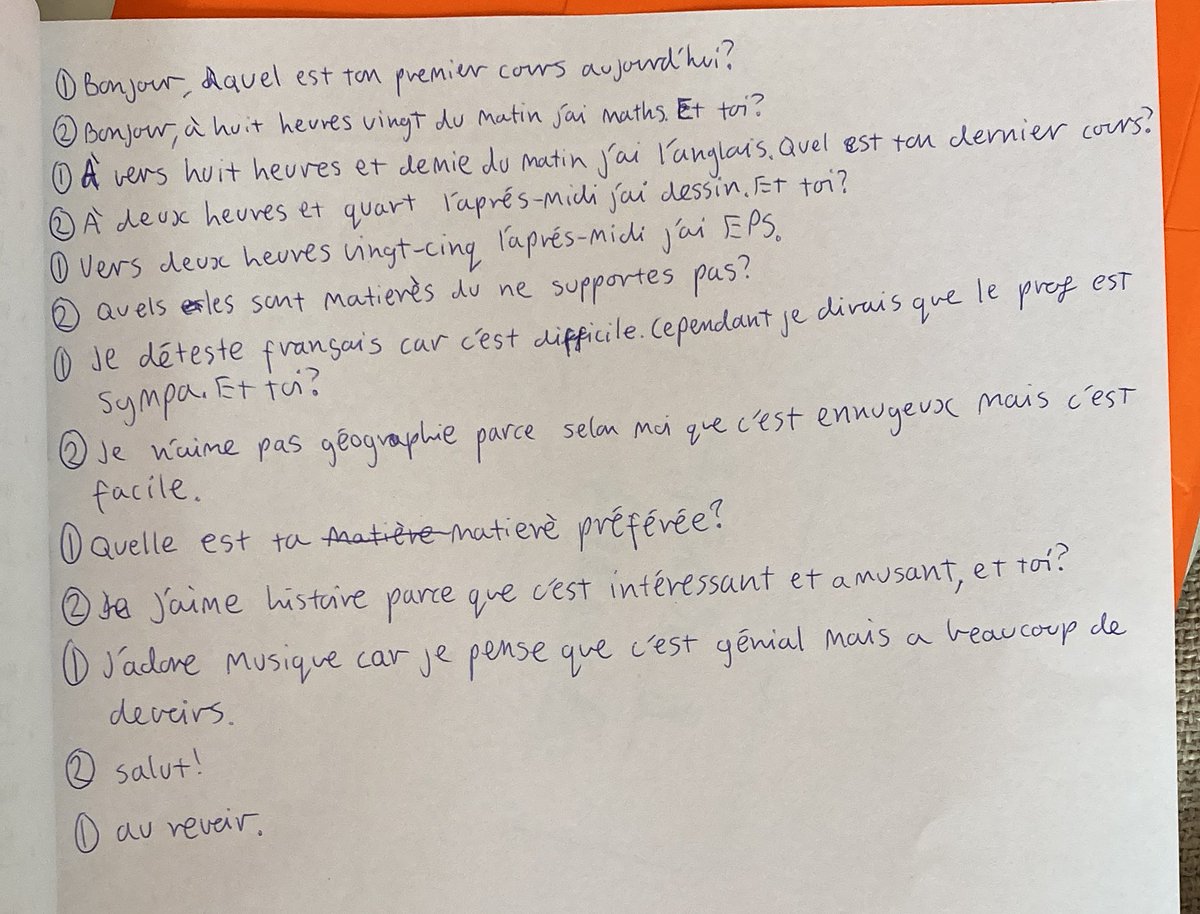 ① Bonjour, quel est ton premier cours aujourd'hui?
② Bonjour, à huit heures vingt du matin j'ai maths. Et toi?
① À vers huit heures et demie du matin j'ai l'anglais. Quel est ton dernier cours?
② À deux heures et quart l'aprés-midi j'ai dessin. Et toi?
① Vers deux heures vingt-cinq l'aprés-midi j'ai EPS.
② Quels les sont matierès du ne supportes pas?
① Je déteste français car c'est difficile. Cependant je dirais que le prof est
sympa. Et toi?
② Je n'aime pas géographie parce selon moi que c'est ennuyeux mais c'est
facile.
① Quelle est ta matière matierè préférée?
② j'aime histoire parce que c'est intéressant et amusant, et toi?
① J'adore musique car je pense que c'est génial mais a beaucoup de
devoirs.
② salut!
① au revoir.